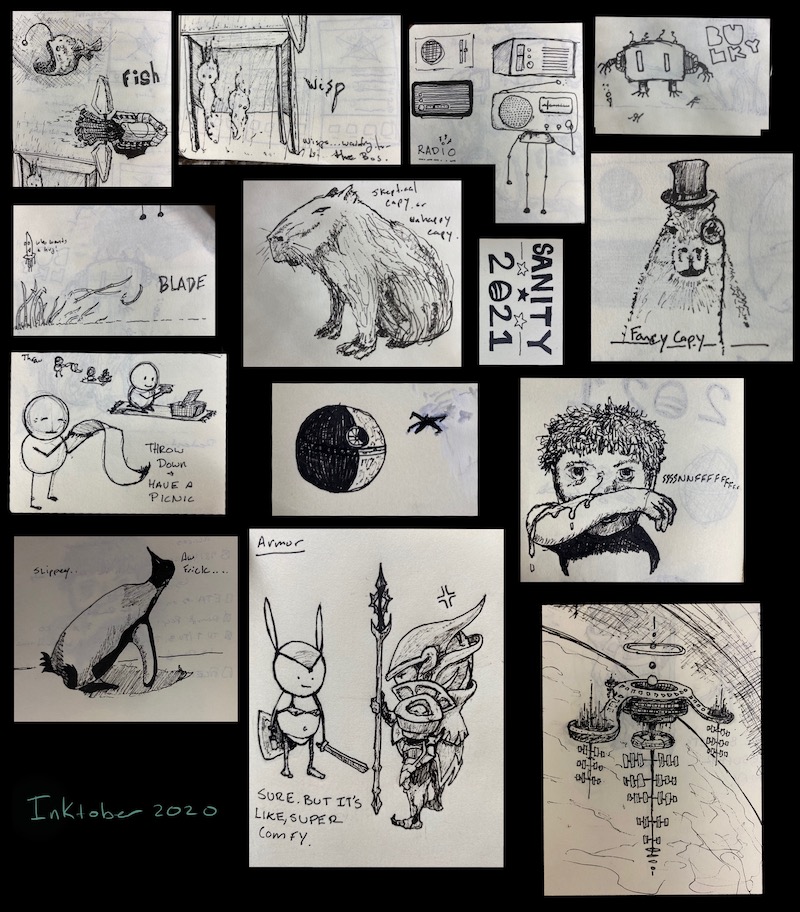 fish
wisp
wisps... waiting for
the Bus.
RADIO
BULKY
who wants
BLADE
skeptical
capy. or
unhappy
capy.
SANITY
2021
Fancy Capy
Throw
THROW
DOWN
→
HAVE A
PICNIC
SSSSNNFFFFFFFFF...
Slippey..
Aw
Frick....
Armor
SURE. BUT IT'S
LIKE, SUPER
COMFY.
Inktober 2020